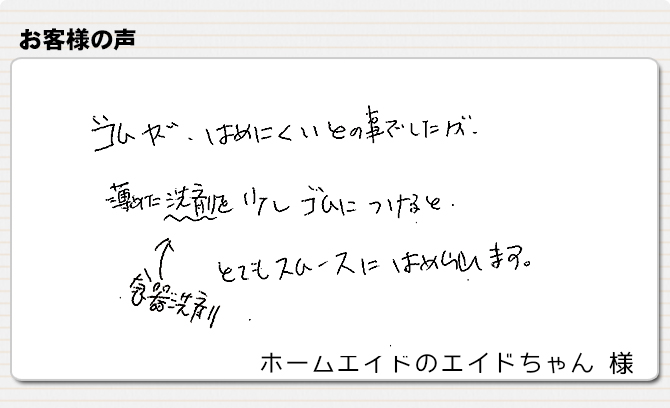 お客様の声
ゴムが、はめにくいとの事でしたが、
薄めた洗剤を少しゴムにつけると、
とてもスムースにはめられます。
食器洗剤
ホームエイドのエイドちゃん 様